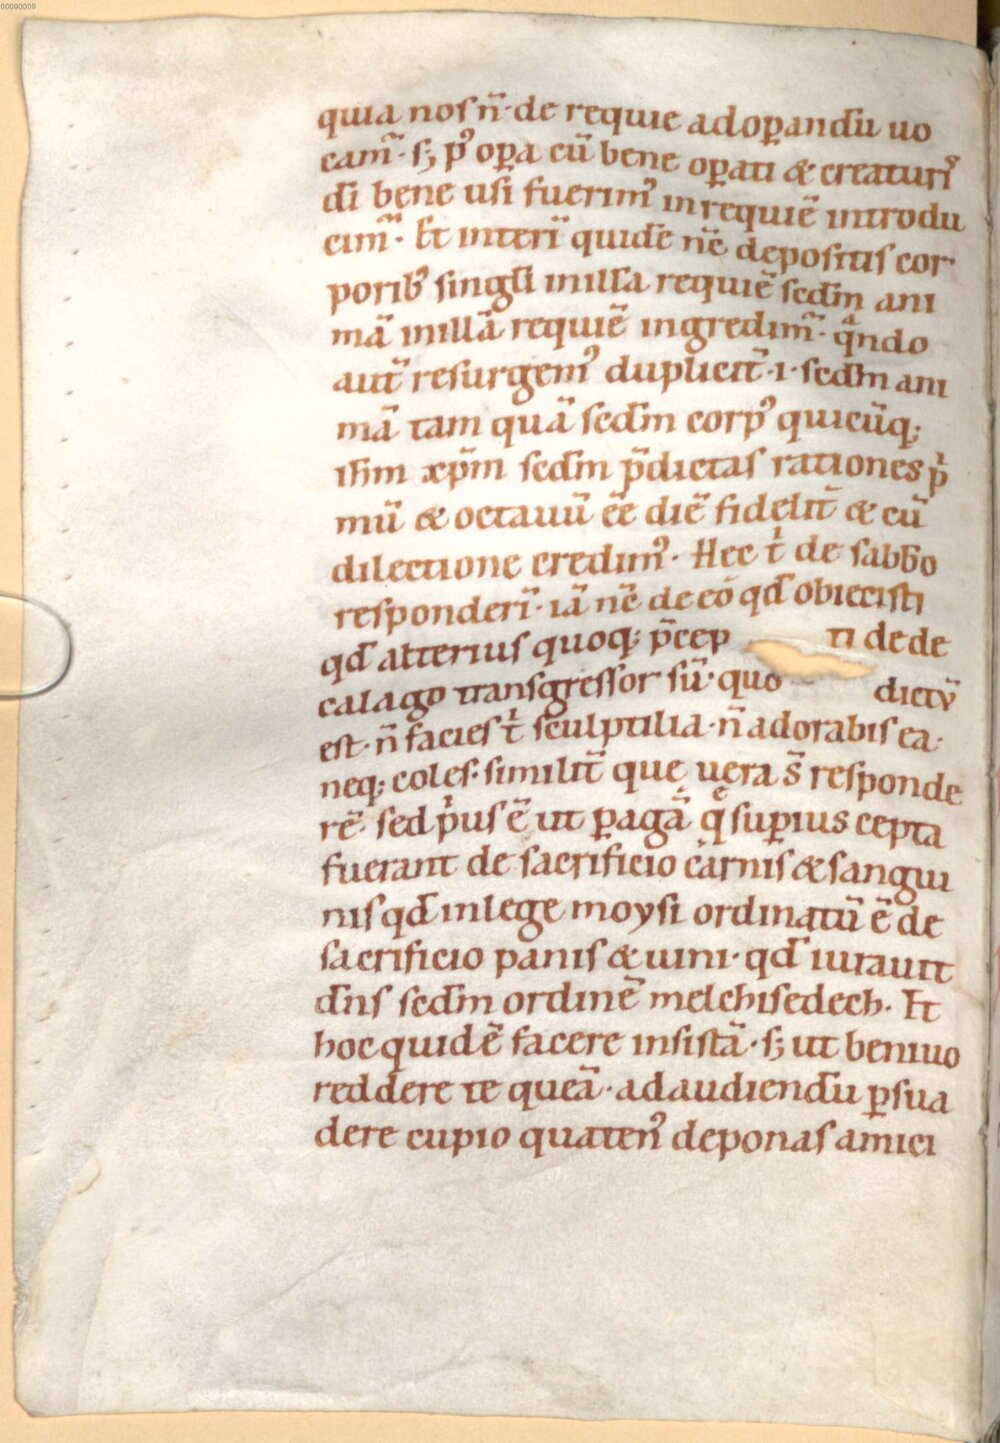 00090009
quia nos n̄· de requie ad op̱andū uo
cam̄· s; p' op̱a cū bene op̱ati & creaturis
dī bene usi fuerim' in requiē introdu
cim̄· Et interī quidē nc̄ depositis cor
porib' singłi in illa requiē secdm ani
mā in illā requiē ingredim̄· qndo
aut̄ resurgem' duplicit̄· i· secdm ani
mā tam quā secdm corp' quicūq;
ihm xp̄m secdm p̄dictas rationes pi
mū & octauū ēe diē fidelit̄ & cū
dilectione credim'· Hec t de sabbo
responderī· iā nc̄ de eo qđ obiecisti
qđ alterius quoq; p̄cep ti de de
calago transgressor sū· quo dictū
est· n̄ facies t sculptilia· n̄ adorabis ea·
neq; coles· similit̄ quę uera s̄ responde
rē· sed pus ē ut p̱agā q superius cepta
fuerant de sacrificio carnis & sangui
nis qđ in lege moysi ordinatū ē de
sacrificio panis & uini· qđ iurauit
dn̄s secdm ordinē melchisedech· Et
hoc quidē facere insistā· s; ut beniuo
reddere te queā· ad audiendū p̱sua
dere cupio quaten' deponas amici